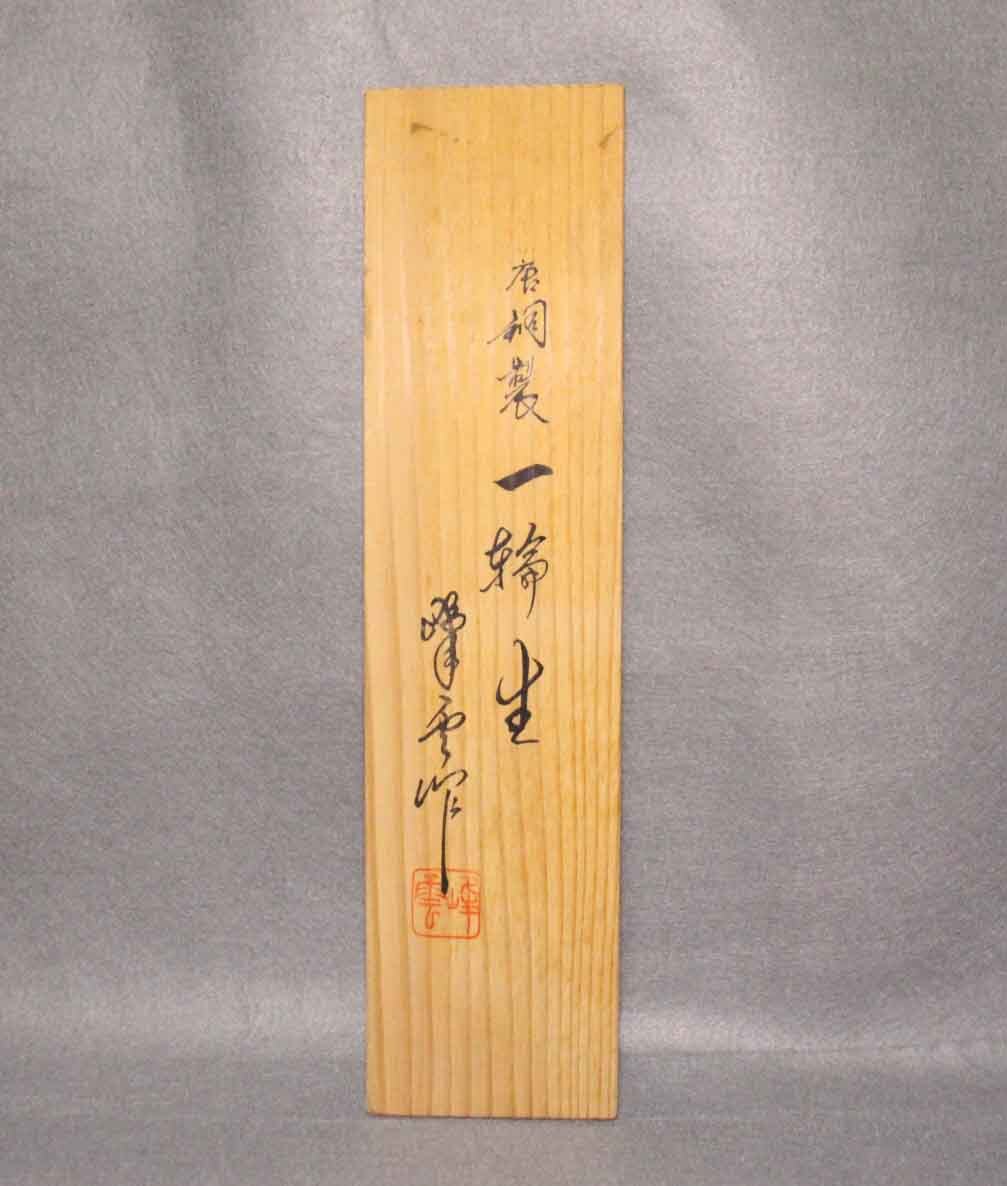 唐銅製 一輪生
峰雲作
峰雲